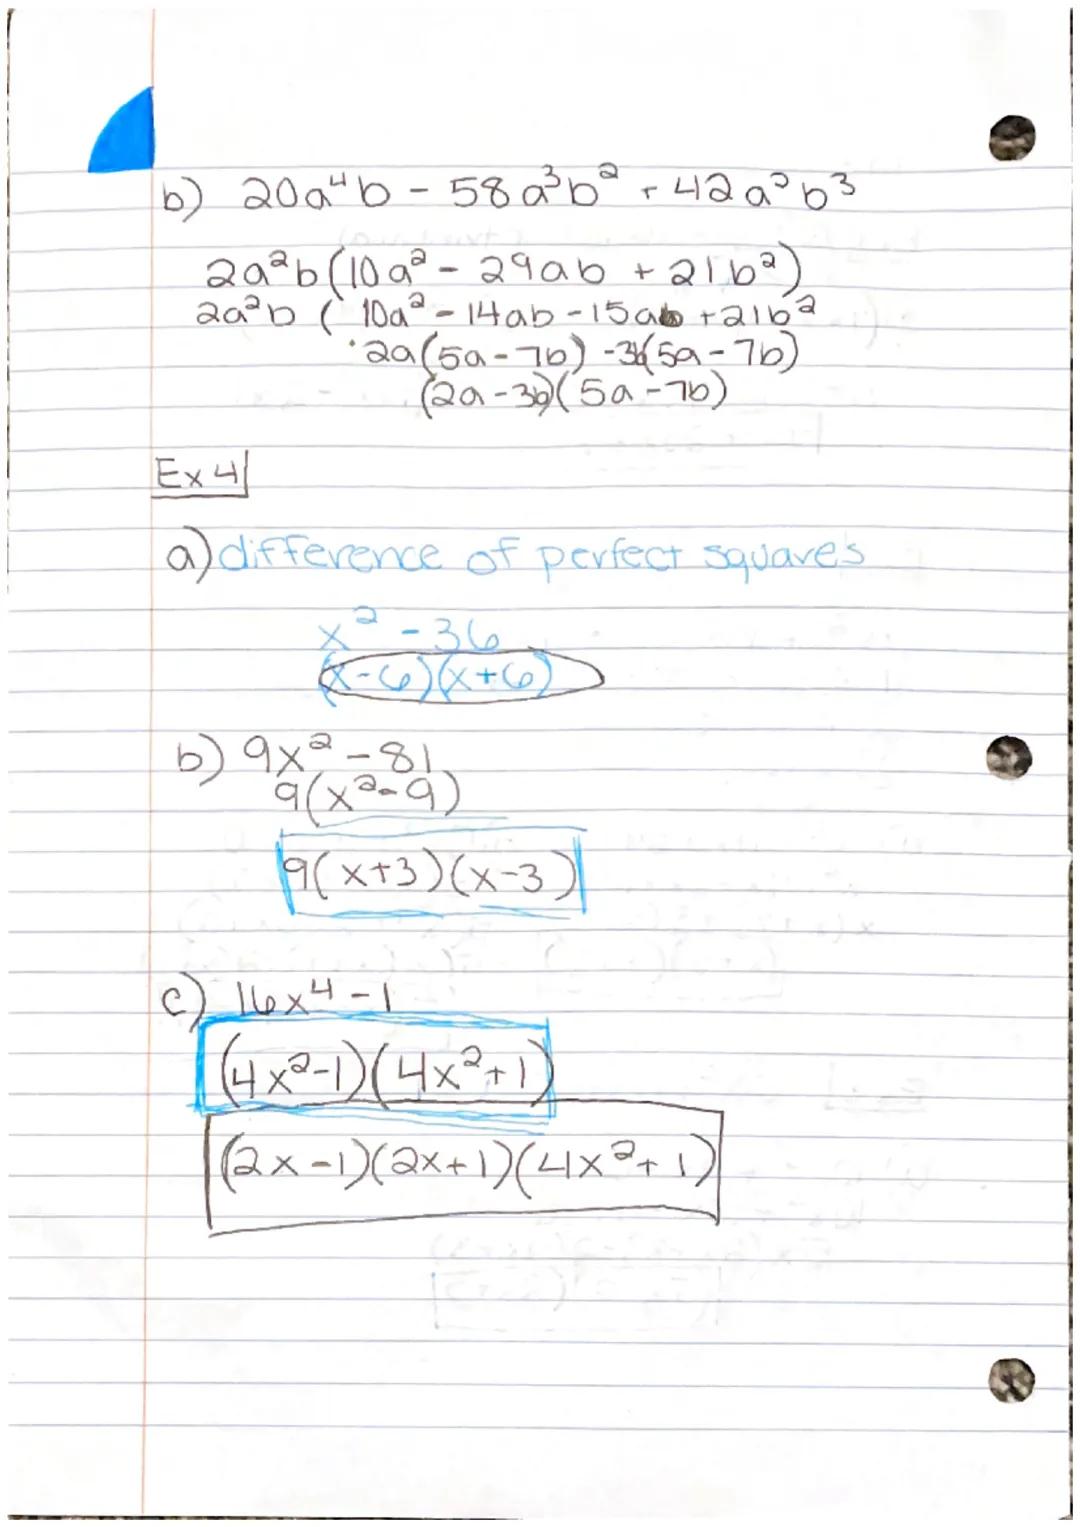 b) 20a⁴b - 58a³b² + 42a²b³
2a²b(10a² - 29ab + 21b²)
2a²b ( 10a² - 14ab - 15ab + 21b²
2a(5a - 7b) -3b(5a - 7b)
(2a - 3b)(5a - 7b)
Ex 4
a) difference of perfect squares
x² - 36
(x-6)(x+6)
b) 9x² - 81
9(x²-9)
9(x+3)(x-3)
c) 16x⁴ - 1
(4x²-1)(4x²+1)
(2x-1)(2x+1)(4x²+1)